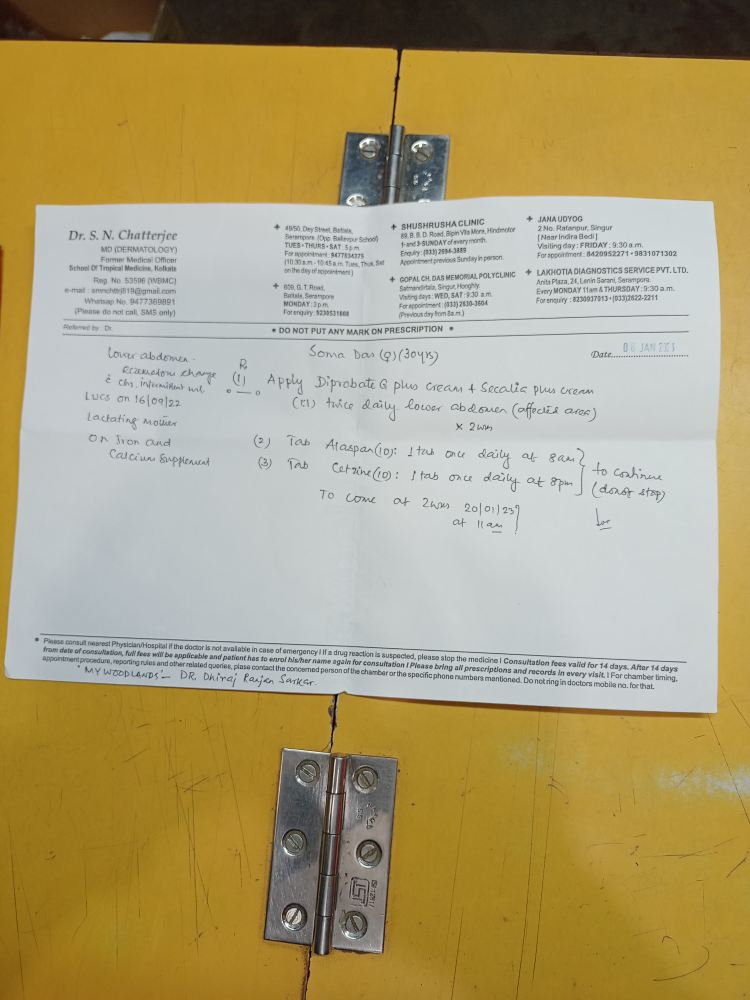 Dr. S. N. Chatterjee
MD (DERMATOLOGY)
Former Medical Officer
School Of Tropical Medicine, Kolkata
Reg. No. 53596 (WBMC)
(Please do not call, SMS only)
49/50, Dey Street, Battala,
Serampore. (Opp. Ballavpur School)
TUES • THURS • SAT : 5 p.m.
For appointment: 9477634375
(10:30 a.m. - 10:45 a.m. Tues, Thur, Sat
on the day of appointment)
609, G. T. Road,
Battala, Serampore
MONDAY : 3 p.m.
For enquiry : 8230531608
SHUSHRUSHA CLINIC
89, B. B. D. Road, Bipin Villa More, Hindmotor
1st and 3rd SUNDAY of every month.
Enquiry : (033) 2694-3889
Appointment previous Sunday in person.
GOPAL CH. DAS MEMORIAL POLYCLINIC
Satmandirtala, Singur, Hooghly.
Visiting days : WED, SAT : 9:30 a.m.
For appointment : (033) 2630-3604
(Previous day from 8a.m.)
JANA UDYOG
2 No. Ratanpur, Singur
[ Near Indira Bedi ]
Visiting day : FRIDAY : 9:30 a.m.
For appointment : 8420952271 • 9831071302
LAKHOTIA DIAGNOSTICS SERVICE PVT. LTD.
Anita Plaza, 24, Lenin Sarani, Serampore.
Every MONDAY 11am & THURSDAY : 9:30 a.m.
For enquiry : 8230937013 • (033)2622-2211
Referred by : Dr.
• DO NOT PUT ANY MARK ON PRESCRIPTION •
Date
JAN
Lower abdomen -
change
Soma Das (♀) (30yrs)
LUCS on 16/09/22
Lactating mother
On Iron and
Calcium Supplement
Rx
(1) Apply Diprobate G plus cream + Secalia plus cream
(1:1) twice daily lower abdomen (affected area)
x 2 wks
(2) Tab Alaspan (10) : 1 tab once daily at 8 am
(3) Tab Cetzine (10) : 1 tab once daily at 8pm
to continue
(donot stop)
To come at 2wks 20/01/23
at 11 am
* Please consult nearest Physician/Hospital if the doctor is not available in case of emergency I If a drug reaction is suspected, please stop the medicine I Consultation fees valid for 14 days. After 14 days
from date of consultation, full fees will be applicable and patient has to enrol his/her name again for consultation I Please bring all prescriptions and records in every visit. I For chamber timing,
appointment procedure, reporting rules and other related queries, please contact the concerned person of the chamber or the specific phone numbers mentioned. Do not ring in doctors mobile no. for that.
'MY WOODLANDS' - DR. Dhiraj Ranjan Sarkar.